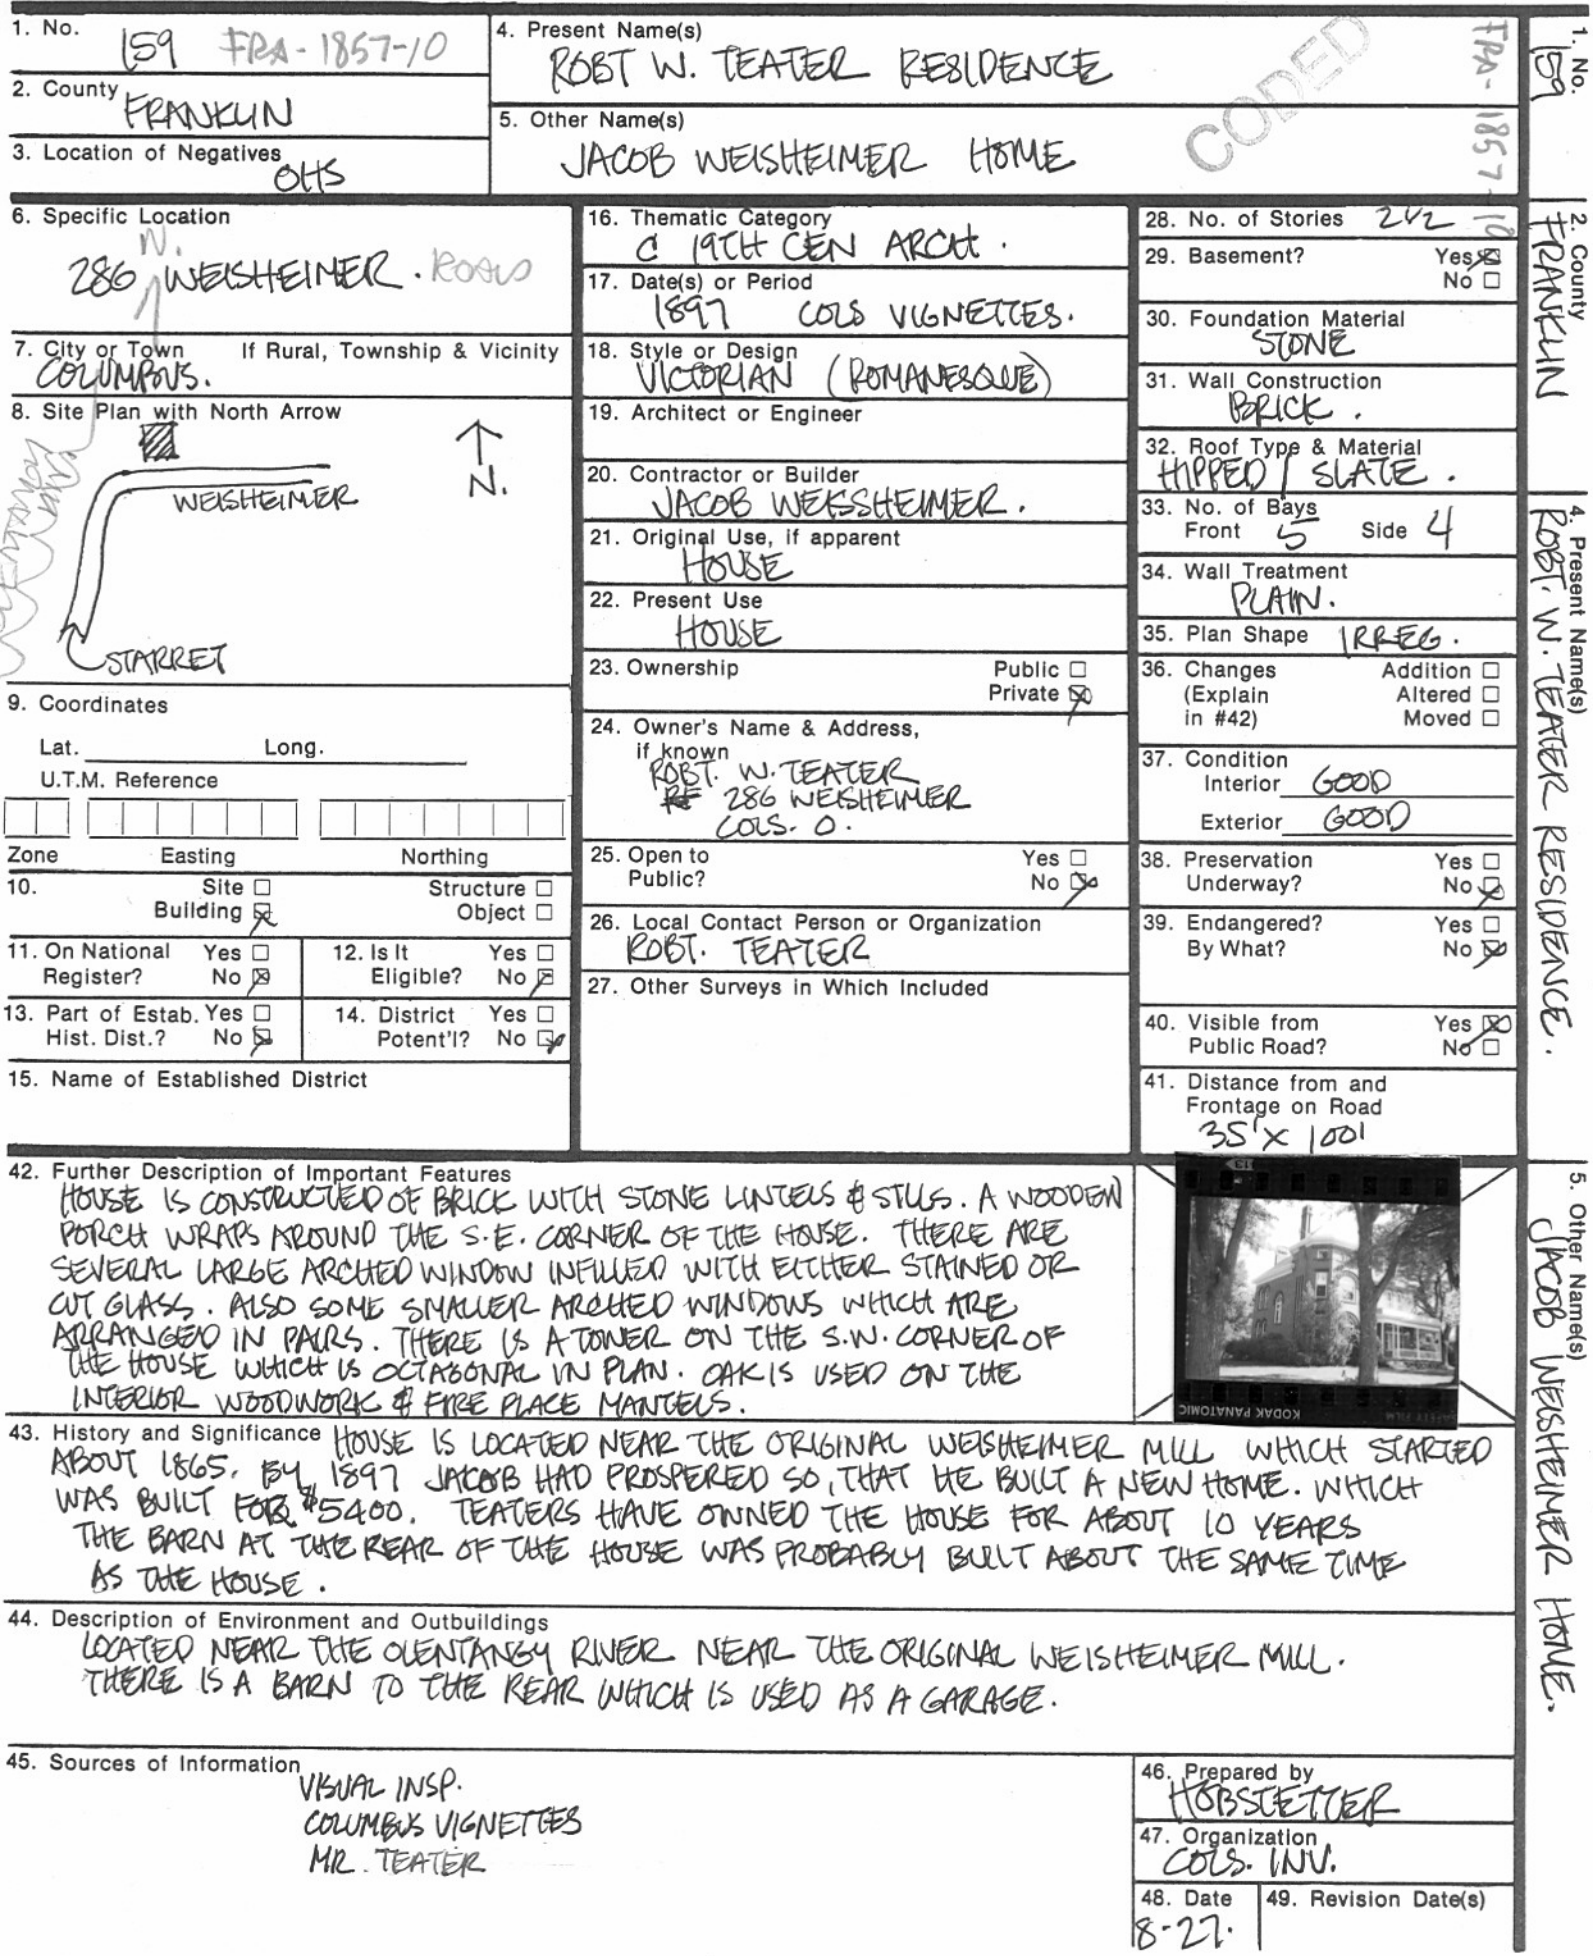 1. No. 159 FRA-1857-10
2. County FRANKLIN
3. Location of Negatives OHS
4. Present Name(s)
ROBT W. TEATER RESIDENCE
5. Other Name(s)
JACOB WEISHEIMER HOME
CODED
FRA-1857-10
6. Specific Location
N.
286 WEISHEIMER. ROAD
7. City or Town If Rural, Township & Vicinity
COLUMBUS.
8. Site Plan with North Arrow
N.
WEISHEIMER
STARRET
9. Coordinates
Lat. Long.
U.T.M. Reference
Zone Easting Northing
10. Site Structure
Building Object
11. On National Register? Yes No
12. Is It Eligible? Yes No
13. Part of Estab. Hist. Dist.? Yes No
14. District Potent'l? Yes No
15. Name of Established District
16. Thematic Category
C 19TH CEN ARCH.
17. Date(s) or Period
1897 COLS VIGNETTES.
18. Style or Design
VICTORIAN (ROMANESQUE)
19. Architect or Engineer
20. Contractor or Builder
JACOB WEISSHEIMER.
21. Original Use, if apparent
HOUSE
22. Present Use
HOUSE
23. Ownership Public
Private
24. Owner's Name & Address,
if known
ROBT. W. TEATER
286 WEISHEIMER
COLS. O.
25. Open to Yes
Public? No
26. Local Contact Person or Organization
ROBT. TEATER
27. Other Surveys in Which Included
28. No. of Stories 2 1/2
29. Basement? Yes
No
30. Foundation Material
STONE
31. Wall Construction
BRICK.
32. Roof Type & Material
HIPPED / SLATE.
33. No. of Bays
Front 5 Side 4
34. Wall Treatment
PLAIN.
35. Plan Shape IRREG.
36. Changes Addition
(Explain Altered
in #42) Moved
37. Condition
Interior GOOD
Exterior GOOD
38. Preservation Yes
Underway? No
39. Endangered? Yes
By What? No
40. Visible from Yes
Public Road? No
41. Distance from and
Frontage on Road
35' x 100'
42. Further Description of Important Features
HOUSE IS CONSTRUCTED OF BRICK WITH STONE LINTELS & SILLS. A WOODEN
PORCH WRAPS AROUND THE S.E. CORNER OF THE HOUSE. THERE ARE
SEVERAL LARGE ARCHED WINDOW INFILLED WITH EITHER STAINED OR
CUT GLASS. ALSO SOME SMALLER ARCHED WINDOWS WHICH ARE
ARRANGED IN PAIRS. THERE IS A TOWER ON THE S.W. CORNER OF
THE HOUSE WHICH IS OCTAGONAL IN PLAN. OAK IS USED ON THE
INTERIOR WOODWORK & FIRE PLACE MANTELS.
KODAK PANATOMIC
SAFETY FILM
43. History and Significance HOUSE IS LOCATED NEAR THE ORIGINAL WEISHEIMER MILL WHICH STARTED
ABOUT 1865. BY 1897 JACOB HAD PROSPERED SO, THAT HE BUILT A NEW HOME. WHICH
WAS BUILT FOR $5400. TEATERS HAVE OWNED THE HOUSE FOR ABOUT 10 YEARS
THE BARN AT THE REAR OF THE HOUSE WAS PROBABLY BUILT ABOUT THE SAME TIME
AS THE HOUSE.
44. Description of Environment and Outbuildings
LOCATED NEAR THE OLENTANGY RIVER NEAR THE ORIGINAL WEISHEIMER MILL.
THERE IS A BARN TO THE REAR WHICH IS USED AS A GARAGE.
45. Sources of Information
VISUAL INSP.
COLUMBUS VIGNETTES
MR. TEATER
46. Prepared by
HOBSTETTER
47. Organization
COLS. INV.
48. Date
8-27.
49. Revision Date(s)
1. No.
159
2. County
FRANKLIN
4. Present Name(s)
ROBT. W. TEATER RESIDENCE.
5. Other Name(s)
JACOB WEISHEIMER HOME.